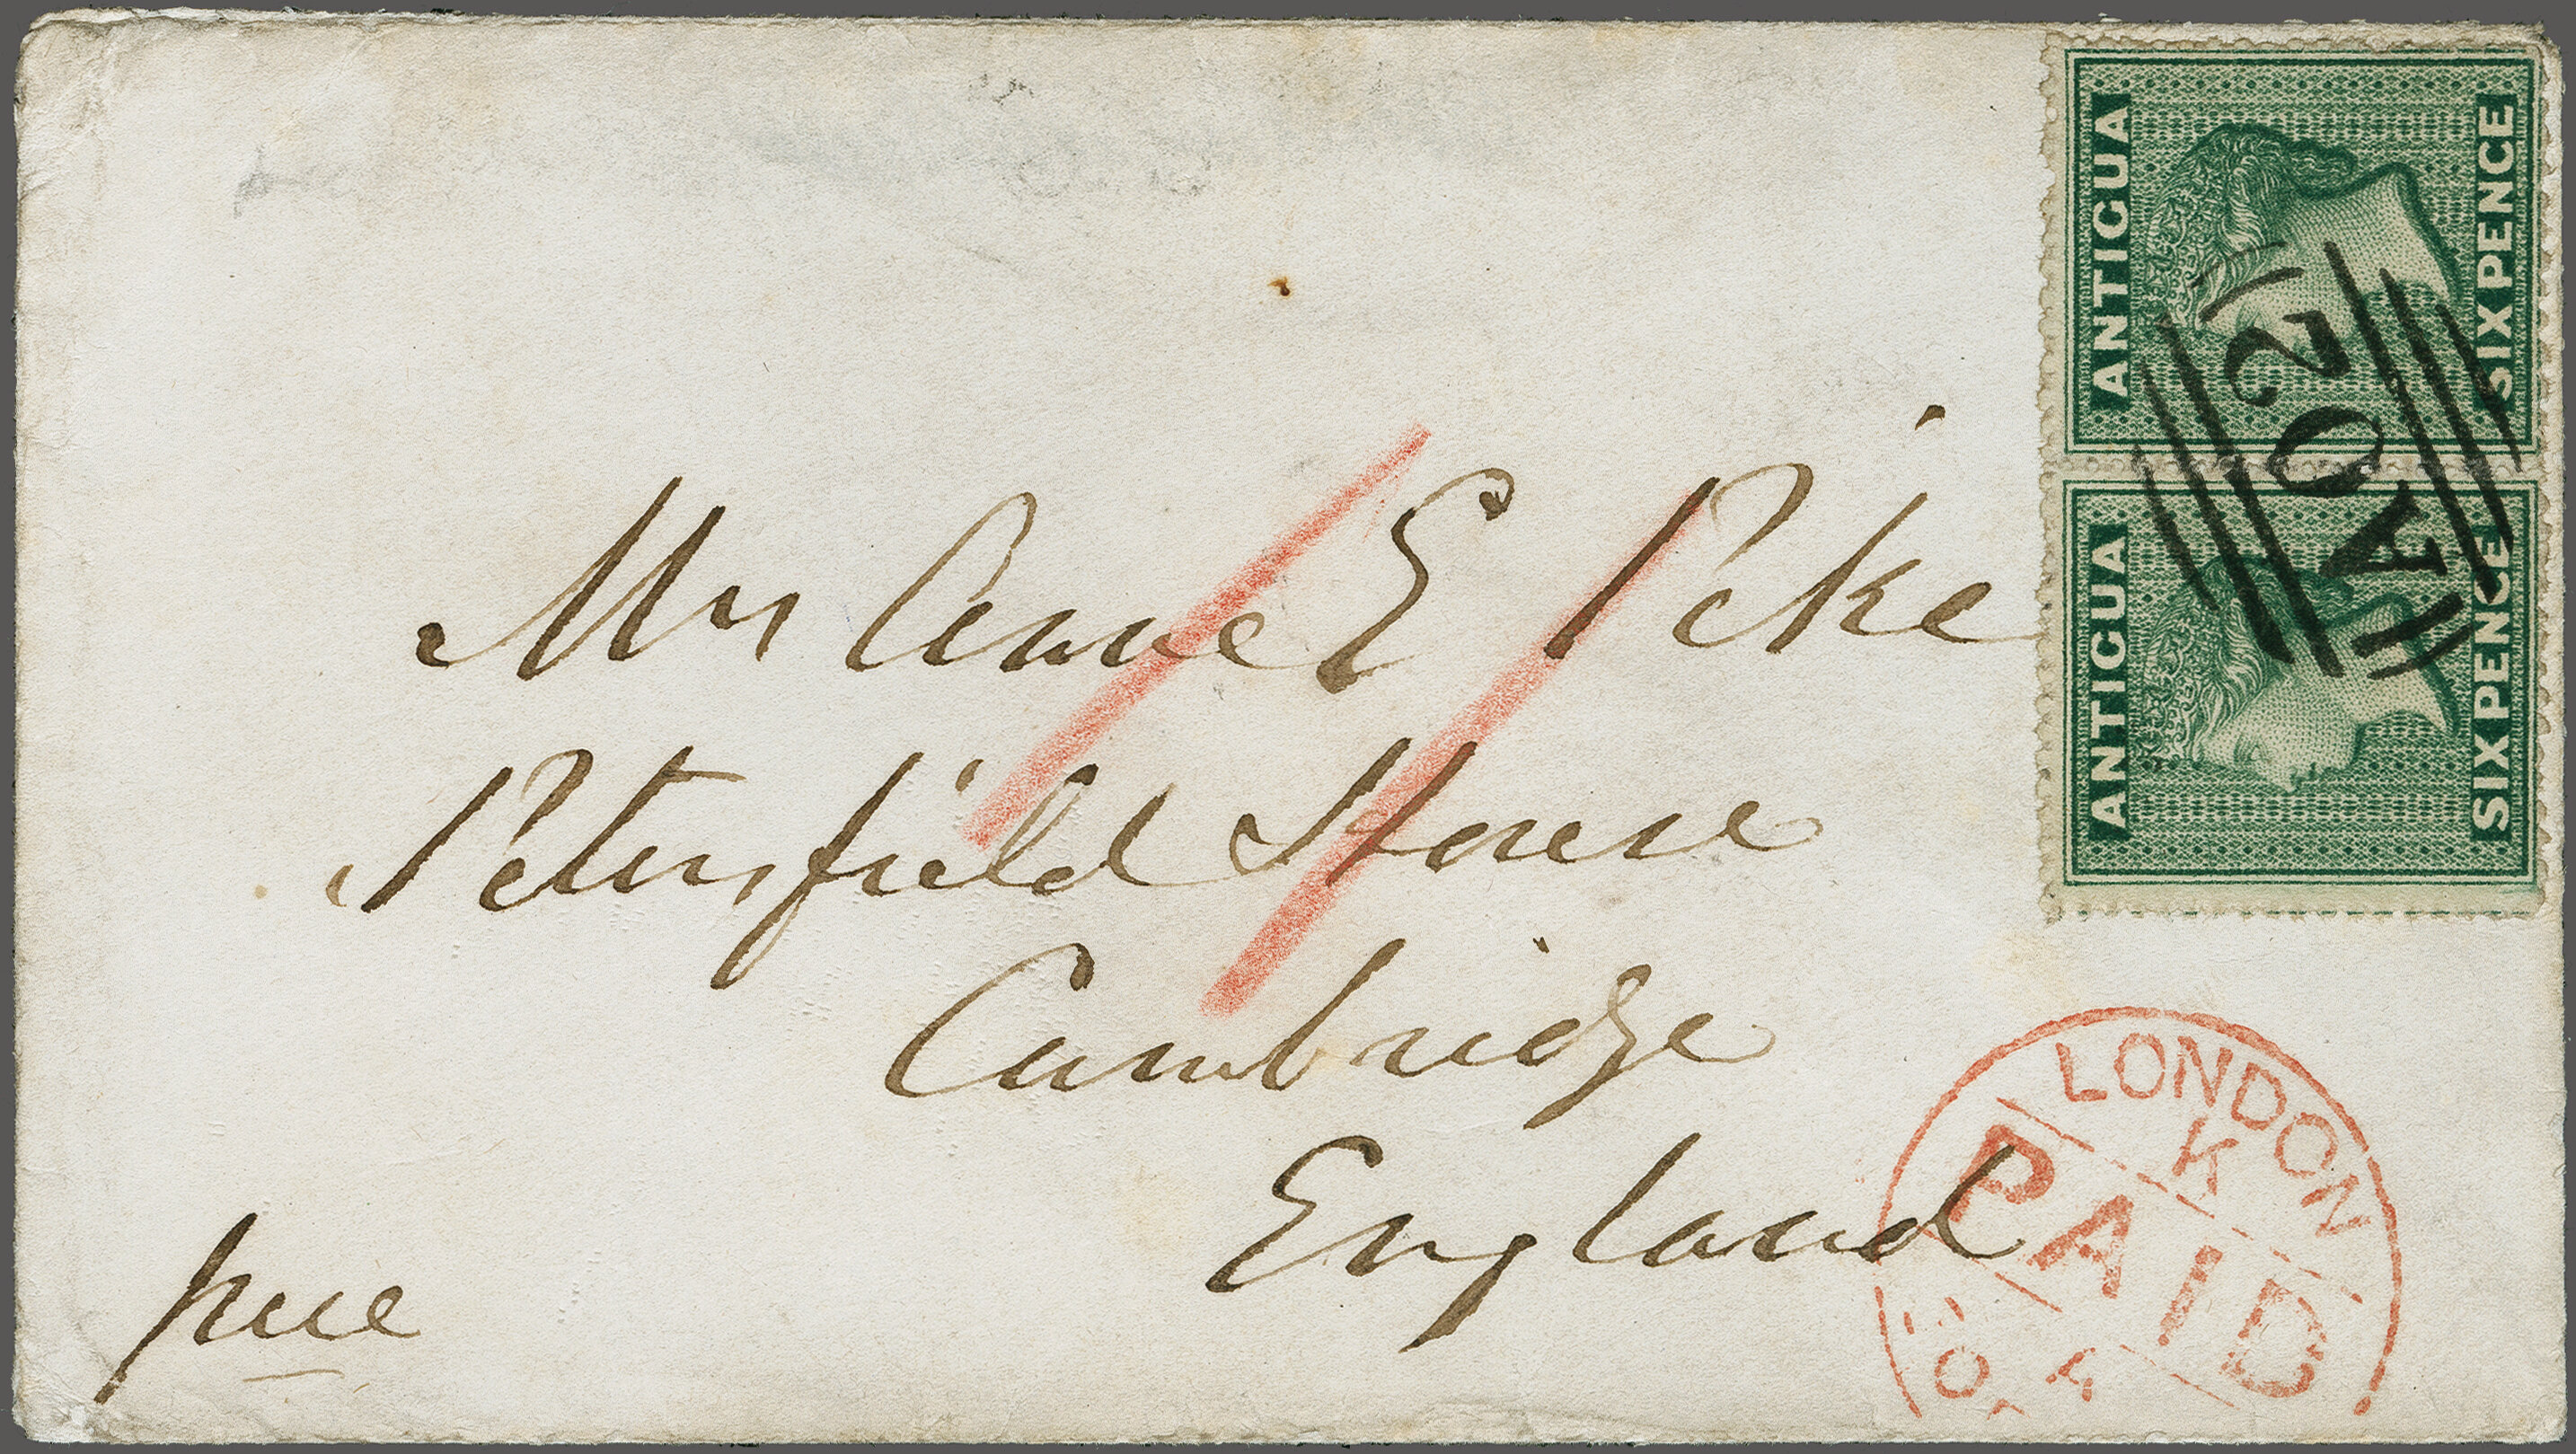 ANTIGUA
SIX PENCE
ANTIGUA
SIX PENCE
A02
Mrs Anne E Pike
Petersfield House
Cambridge
England
LONDON
K
PAID
4